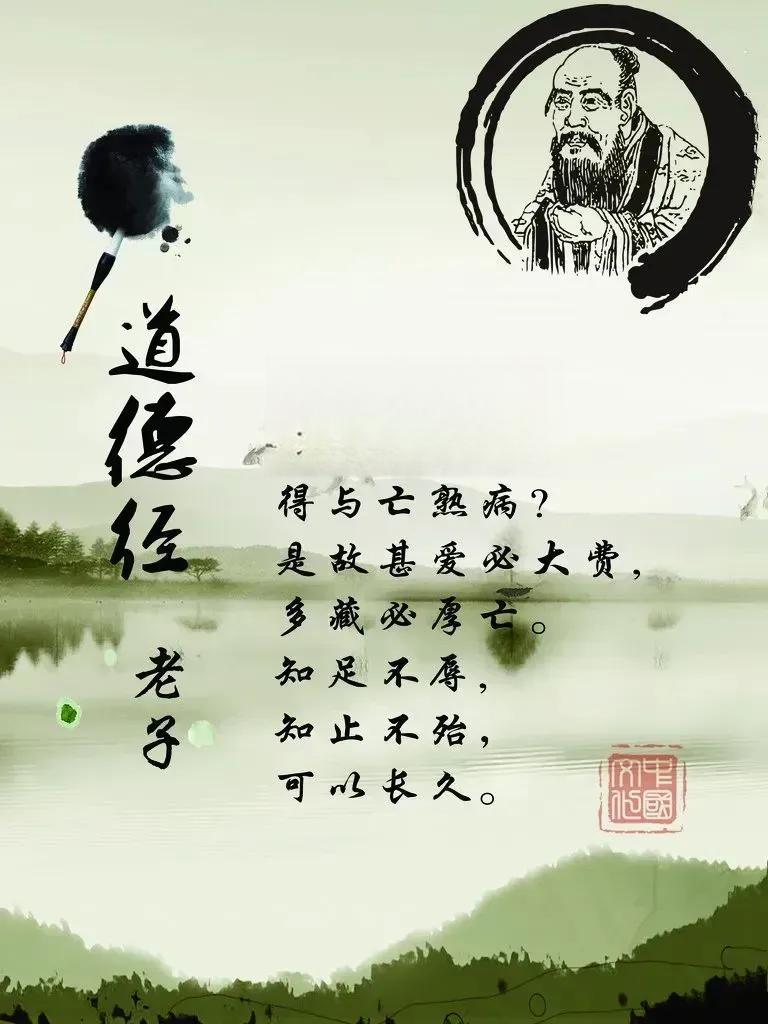 道德经
老子
得与亡熟病？
是故甚爱必大费，
多藏必厚亡。
知足不辱，
知止不殆，
可以长久。
中國
文化